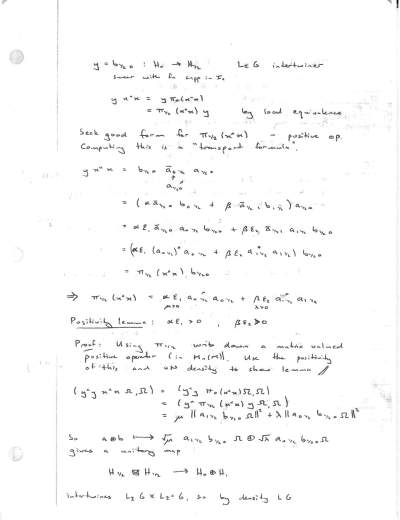 y = b½₀ : H₀ → H½ L_I G intertwiner
smear with fn supp in I₀
y x*x = y π₀(x*x)
= π½(x*x) y by local equivalence
Seek good form for π½(x*x) - positive op.
Computing this is a "transport formula".
y x*x = b½₀ a₀½ a½₀
a½₀*
= (α a½₀ b₀½ + β a½₁ b₁½) a½₀
= α ε₁ a½₀ a₀½ b½₀ + β ε₂ a½₁ a₁½ b½₀
= (α ε₁ (a₀½)* a₀½ + β ε₂ a₁½* a₁½) b½₀
= π½(x*x) b½₀
⇒ π½(x*x) = α ε₁ a₀½* a₀½ + β ε₂ a₁½* a₁½
Positivity lemma : α ε₁ > 0 , β ε₂ > 0
Proof: Using π½ write down a matrix valued
positive operator (in Mₙ(M)). Use the positivity
of this, and vN density to show lemma //
(y*y x*x Ω, Ω) = (y*y π₀(x*x) Ω, Ω)
= (y* π½(x*x) y Ω, Ω)
= μ ‖a₁½ b½₀ Ω‖² + λ ‖a₀½ b½₀ Ω‖²
So a⊗b ⟼ √μ a₁½ b½₀ Ω ⊕ √λ a₀½ b½₀ Ω
gives a unitary map
H½ ⊠ H½ → H₀ ⊕ H₁
intertwines L_I G × L_Iᶜ G, so by density LG